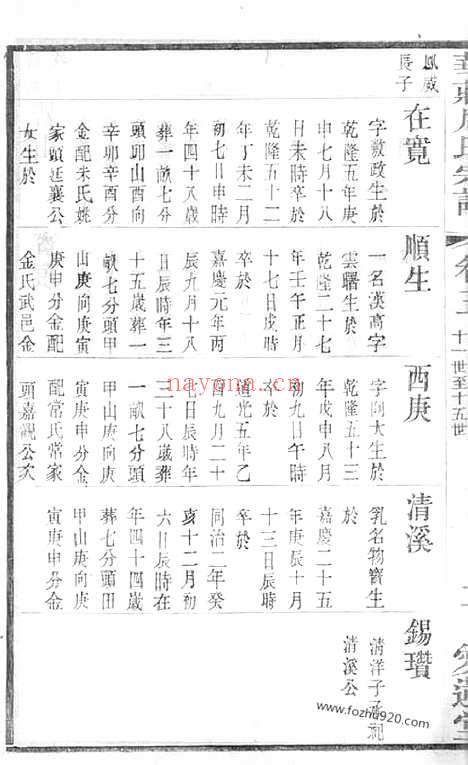 十一世至十五世
鳳威
長子
在寬
字敷政生於
乾隆五年庚
申七月十八
日未時卒於
乾隆五十二
年丁未二月
初七日申時
年四十八歲
葬一畝七分
頭卯山酉向
辛卯辛酉分
金配朱氏姚
家頭廷襄公
女生於
順生
一名漢高字
雲曙生於
乾隆二十七
年壬午正月
十七日戌時
卒於
嘉慶元年丙
辰九月十八
日辰時年三
十五歲葬一
畝七分頭甲
山庚向庚寅
庚申分金配
金氏武邑金
西庚
字向大生於
乾隆五十三
年戊申八月
初九日午時
卒於
道光五年乙
酉九月二十
七日辰時年
三十八歲葬
一畝七分頭
甲山庚向庚
寅庚申分金
配常氏常家
頭嘉觀公次
清溪
乳名物寶生
於
嘉慶二十五
年庚辰十月
十三日辰時
卒於
同治二年癸
亥十二月初
六日辰時在
年四十四歲
葬七分頭田
甲山庚向庚
寅庚申分金
錫瓚
清洋子承祀
清溪公
nayona.cn
www.fozhu920.com